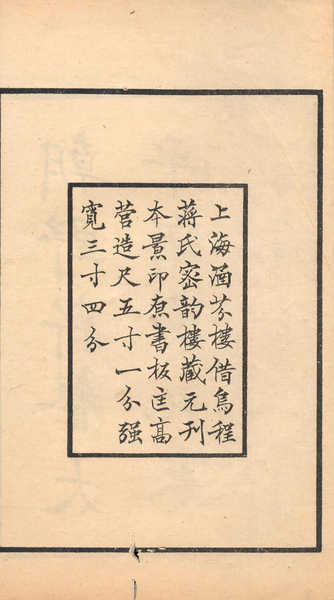 上海涵芬樓借烏程
蔣氏密韵樓藏元刊
本景印原書板匡高
營造尺五寸一分强
寬三寸四分